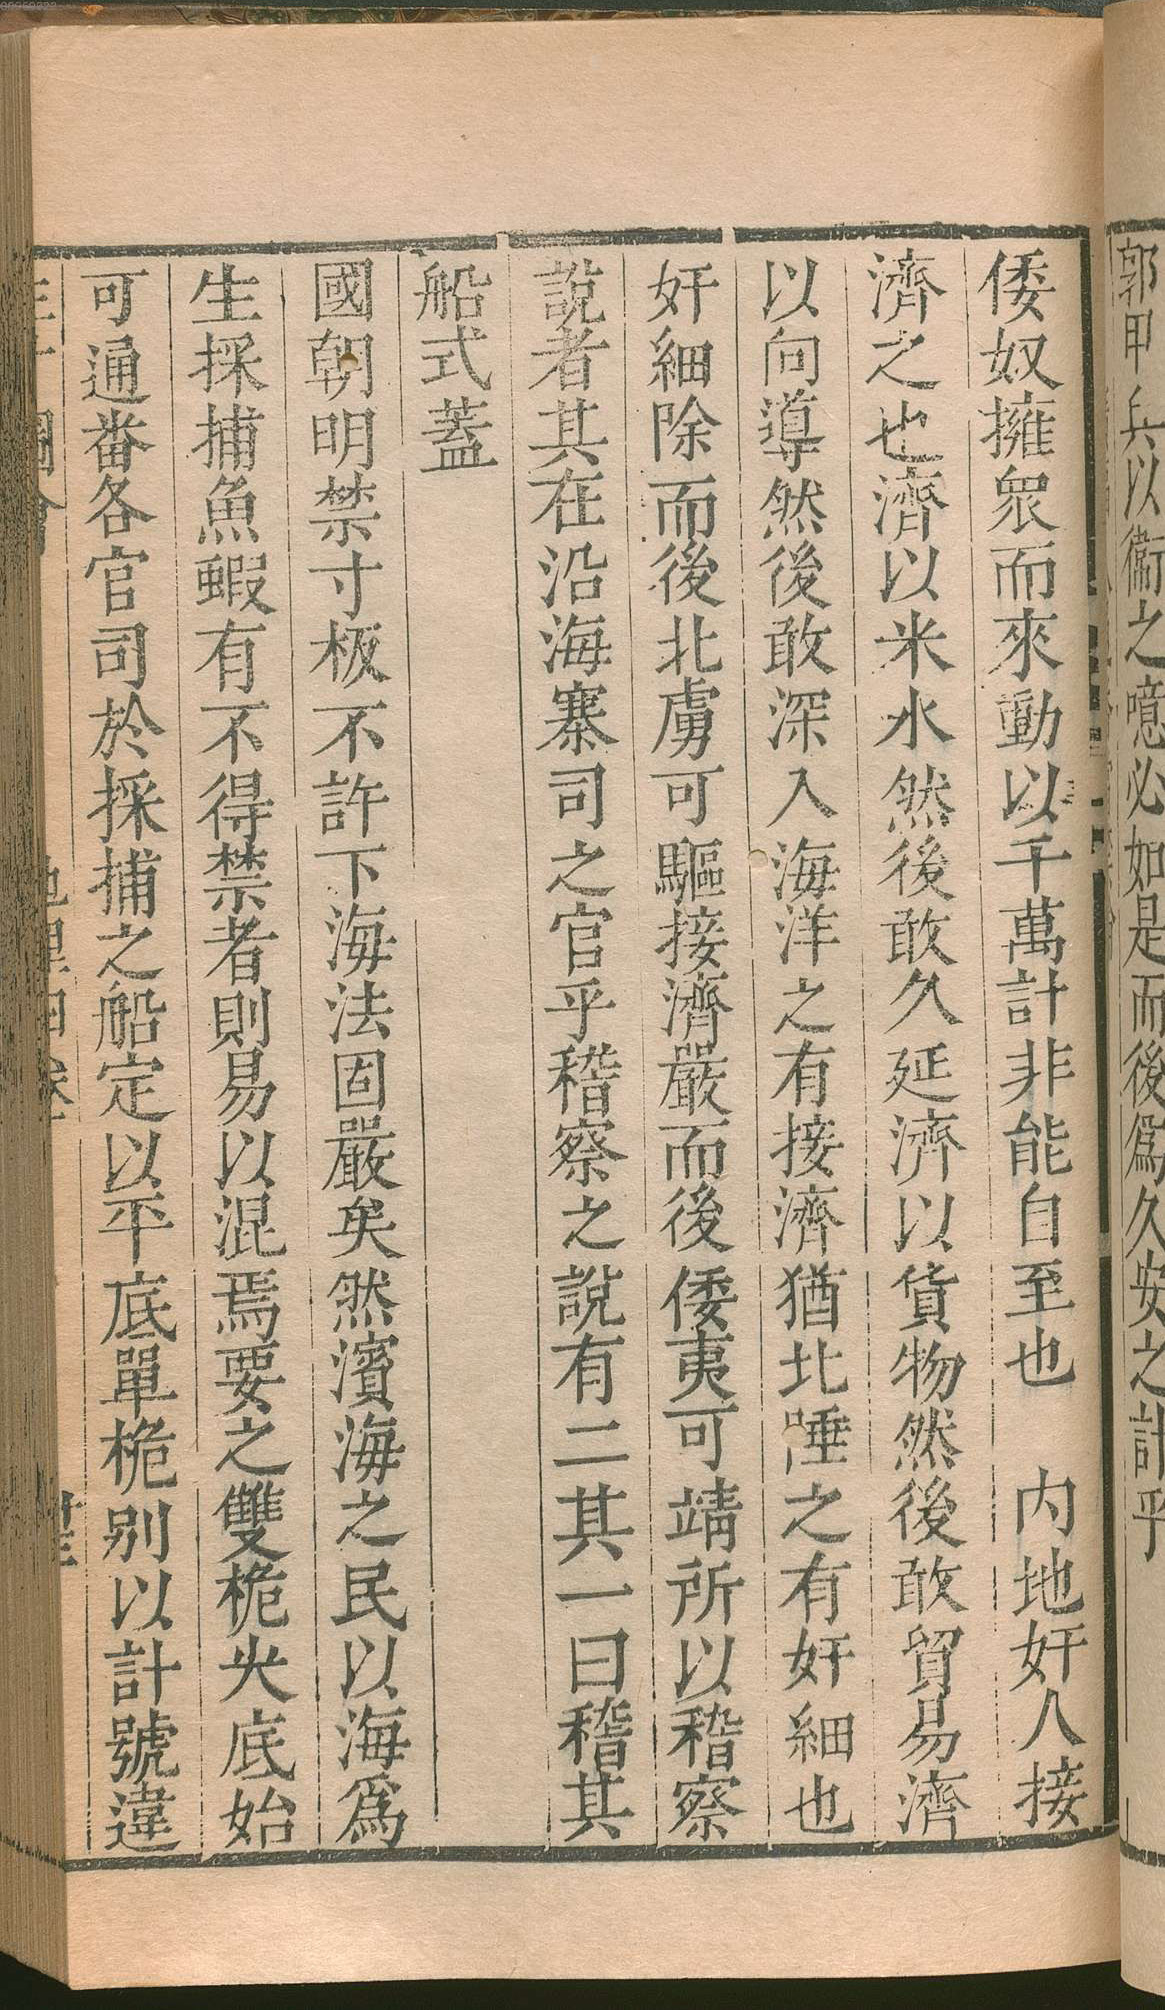 郭甲兵以衞之噫必如是而後爲久安之計乎
倭奴擁眾而來動以千萬計非能自至也　内地奸人接
濟之也濟以米水然後敢久延濟以貨物然後敢貿易濟
以向導然後敢深入海洋之有接濟猶北陲之有奸細也
奸細除而後北虜可驅接濟嚴而後倭夷可靖所以稽察
說者其在沿海寨司之官乎稽察之說有二其一曰稽其
船式蓋
國朝明禁寸板不許下海法固嚴矣然濱海之民以海爲
生採捕魚蝦有不得禁者則易以混焉要之雙桅尖底始
可通番各官司於採捕之船定以平底單桅别以計號違